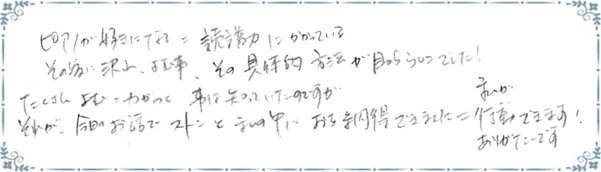 ピアノが好きになる＝読譜力にかかっている
その為に沢山、よむ事、その具体的方法が目からウロコでした！
たくさんよむ＝わかっく事は知っていたのですが
それが、今回のお話でストンと私の中におち納得できました＝行動できます！
私が
ありがたいです